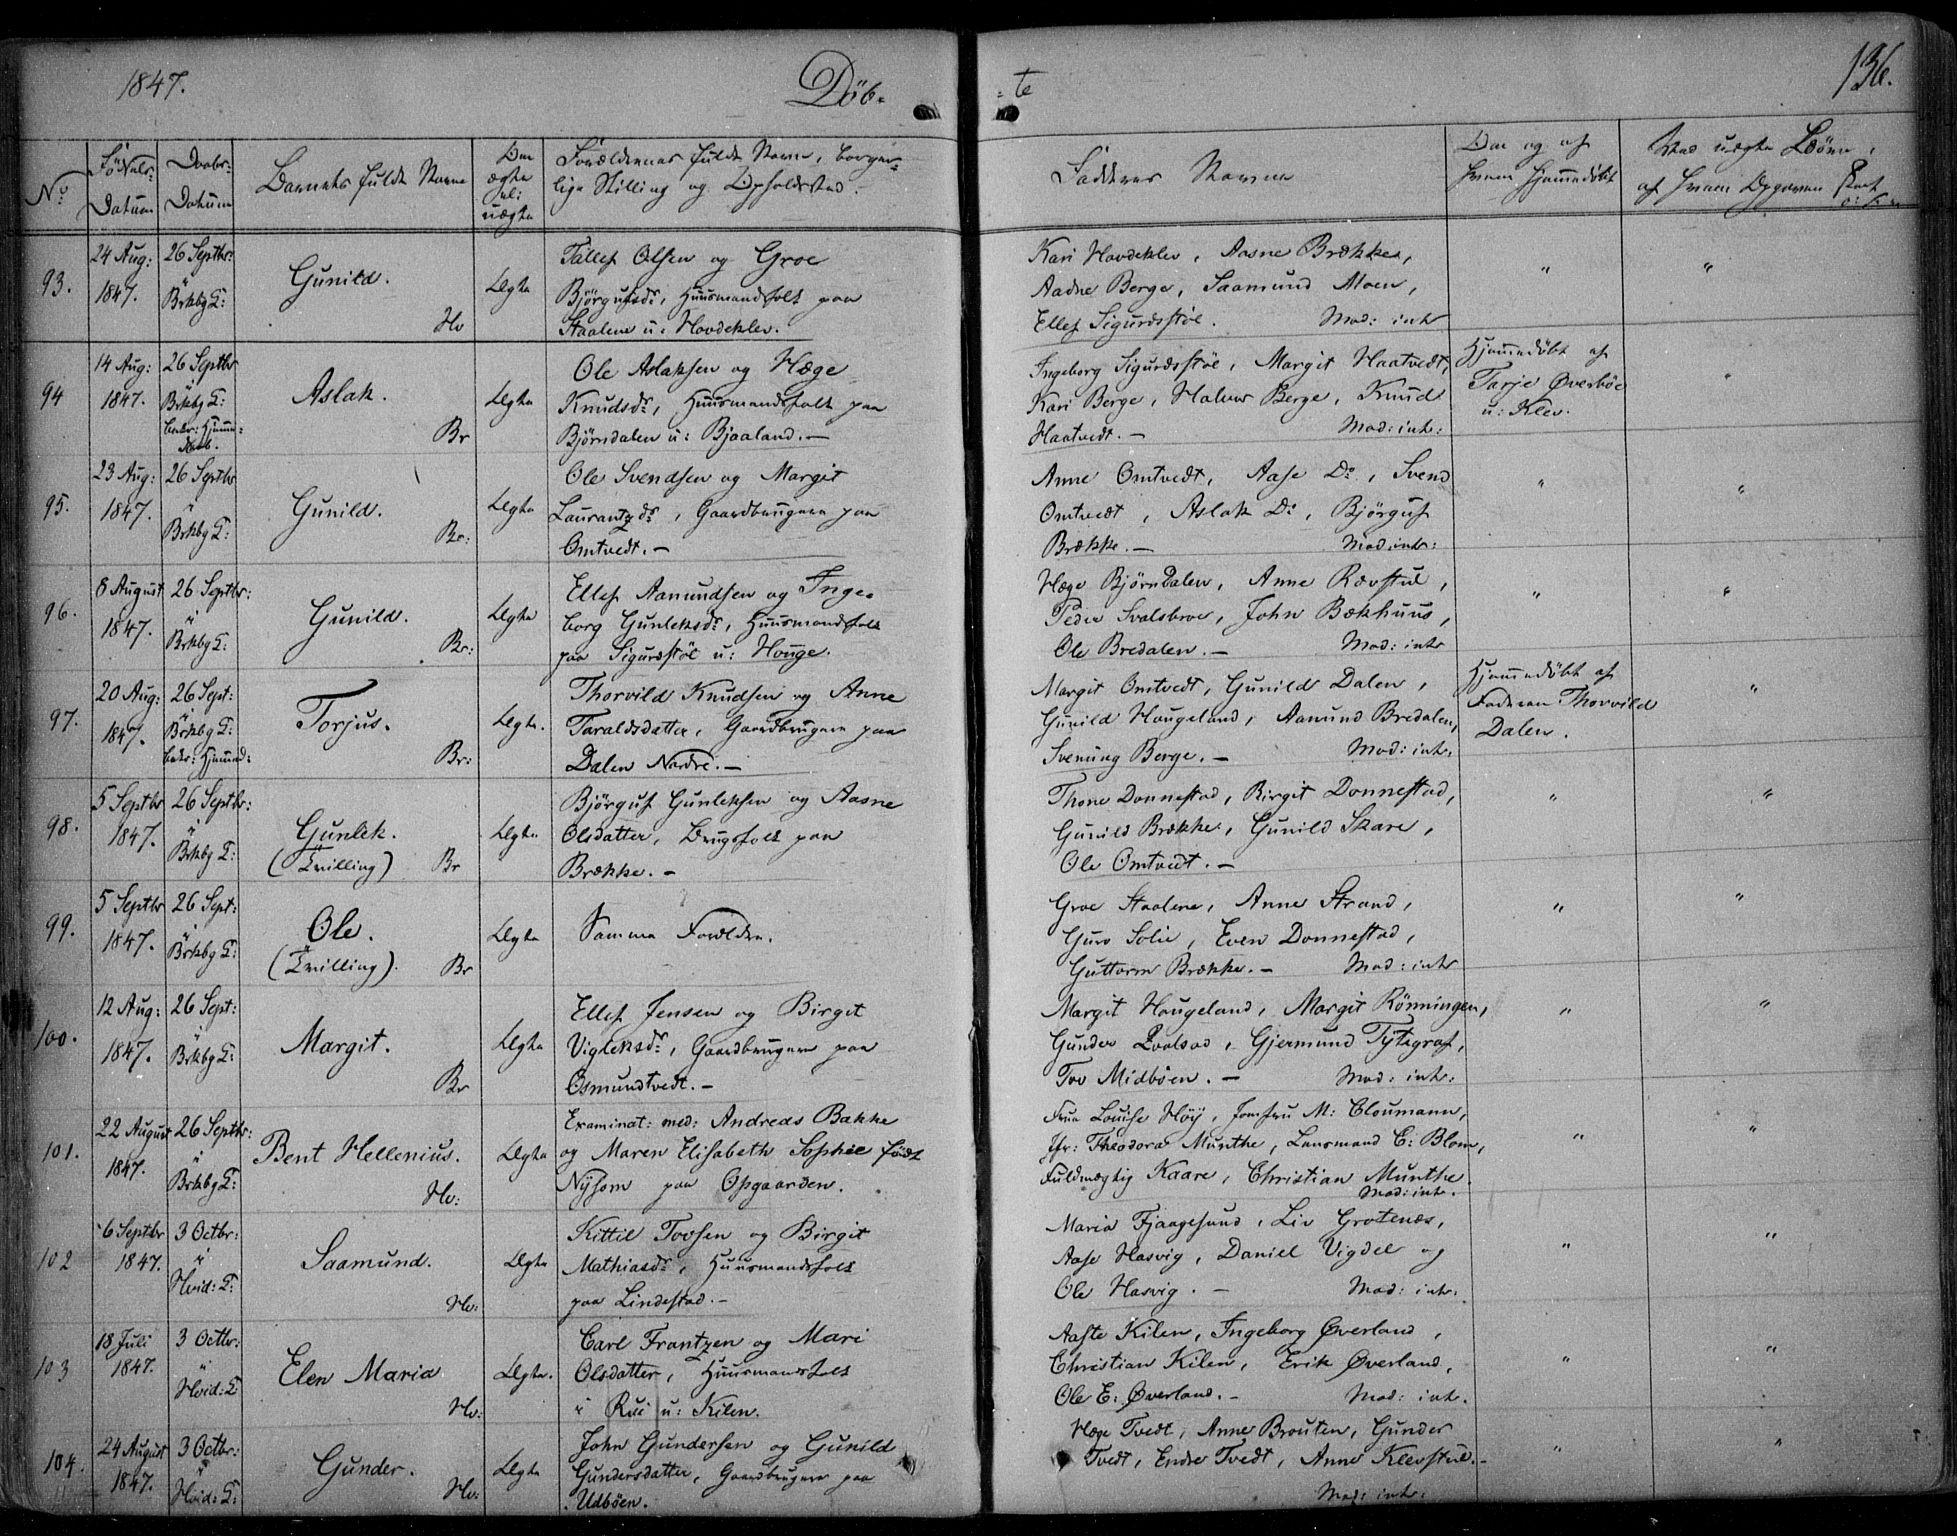 1847.
Döb-
-te
136.
No
Fødsels-
Datum
Daabs-
Datum
Barnets fulde Navne
Om
ægte
ell:
uægte
Forældrenes fulde Navne, borger-
lige Stilling og Opholdssted.
Faddernes Navne
Om og af
hvem hjemmedöbt
Ved uægte Börn,
af hvem Opgaven
93.
24 Aug:
1847.
26 Septbr:
i
Brkbg K:
Gunild.
Hv
Ægte
Tallef Olsen og Groe
Björgufsdr, Huusmandsfolk paa
Staalene u: Hovdeklev.
Kari Hovdeklev, Aasne Brække,
Aadne Berge, Saamund Moen,
Ellef Sigurdsstöl. Mod: intr
"
"
94
14 Aug:
1847.
26 Septbr
i
Brkbg K:
bekr: Hjemme-
daab.
Aslak.
Br
Ægte
Ole Aslaksen og Hæge
Knudsdr, Huusmandsfolk paa
Björndalen u: Bjaaland.-
Ingeborg Sigurdsstöl, Margit Haatvedt,
Kari Berge, Halvor Berge, Knud
Haatvedt.- Mod: intr:
Hjemmedöbt af
Tarje Øverböe
u: Klev.
"
95.
23 Aug:
1847.
26 Septbr
i
Brkbg K:
Gunild.
Br:
Ægte
Ole Svendsen og Margit
Laurantzdr, Gaardbrugere paa
Omtvedt.-
Anne Omtvedt, Aase Do, Svend
Omtvedt, Aslak Do, Björguf
Brække.- Mod: intr:
"
"
96.
8 August
1847.
26 Septbr:
i
Brkbg K:
Gunild.
Br:
Ægte
Ellef Aamundsen og Inge-
borg Gunleksdr, Huusmandsfolk
paa Sigurdstöl u: Houge.
Hæge Björndalen, Anne Rævstul,
Peder Svalsbroe, John Bækhuus,
Ole Bredalen.- Mod: intr
"
"
97.
20 Aug:
1847.
26 Sept:
i
Brkbg K:
bekr: Hjemmed:
Torjus.
Br:
Ægte.
Thorvild Knudsen og Anne
Taraldsdatter, Gaardbrugere paa
Dalen Nordre.-
Margit Omtvedt, Gunild Dalen,
Gunild Hougeland, Aamund Bredalen,
Svenung Berge.- Mod: intr.
Hjemmedöbt af
Faderen Thorvild
Dalen.
"
98.
5 Septbr
1847.
26 Septbr:
i
Brkbg K:
Gunlek.
(Tvilling)
Br
Ægte.
Björguf Gunleksen og Aasne
Olsdatter, Brugsfolk paa
Brække.-
Thone Donnestad, Birgit Donnestad,
Gunild Brække, Gunild Skare,
Ole Omtvedt.-
"
"
99.
5 Septbr
1847.
26 Sept:
i
Brkbg K:
Ole.
(Tvilling).
Br
Ægte
Samme Forældre.
Groe Staalene, Anne Strand,
Guro Solie, Even Donnestad,
Guttorm Brække.- Mod: intr
"
"
100.
12 Aug:
1847.
26 Sept:
i
Brkbg K:
Margit.
Br
Ægte
Ellef Jensen og Birgit
Vigleksdr, Gaardbrugere paa
Osmundtvedt.-
Margit Hougeland, Margit Rönningen,
Gunder Qvalsod, Gjermund Tytegraf,
Tov Midböen.- Mod: intr:
"
"
101.
22 August
1847.
26 Septbr:
i
Brkbg K:
Bent Hellenius.
Hv:
Ægte
Examinat: med: Andreas Bakke
og Maren Elisabeth Sophie født
Nysom paa Opgaarden.
Frue Louise Höy, Jomfru M: Cloumann,
Jfr: Theodora Munthe, Lensmand C: Blom,
Fuldmægtig Kaare, Christian Munthe.
Mod: intr.
"
"
102
6 Septbr
1847.
3 Octbr:
i
Hvid: K:
Saamund.
Hv:
Ægte
Kittil Tovsen og Birgit
Mathiasdr, Huusmandsfolk
paa Lindestad.-
Maria Fjaagesund, Liv Grotenæs,
Aase Hasvig, Daniel Vigdel og
Ole Hasvig.- Mod: intr:
"
"
103
18 Juli
1847.
3 Octbr:
i
Hvid: K:
Elen Maria
Hv:
Ægte.
Carl Frantzen og Mari
Olsdatter, Huusmandsfolk
i Rui u: Kilen.
Aaste Kilen, Ingeborg Øverland,
Christian Kilen, Erik Øverland,
Ole E: Øverland.- Mod: intr.
"
"
104.
24 August
1847.
3 Octbr:
i
Hvid: K:
Gunder.
Hv:
Ægte
John Gundersen og Gunild
Gundersdatter, Gaardbrugere paa
Udböen.
Hæge Tvedt, Anne Brouten, Gunder
Tvedt, Endre Tvedt, Anne Klevstul.-
Mod: intr:
"
"